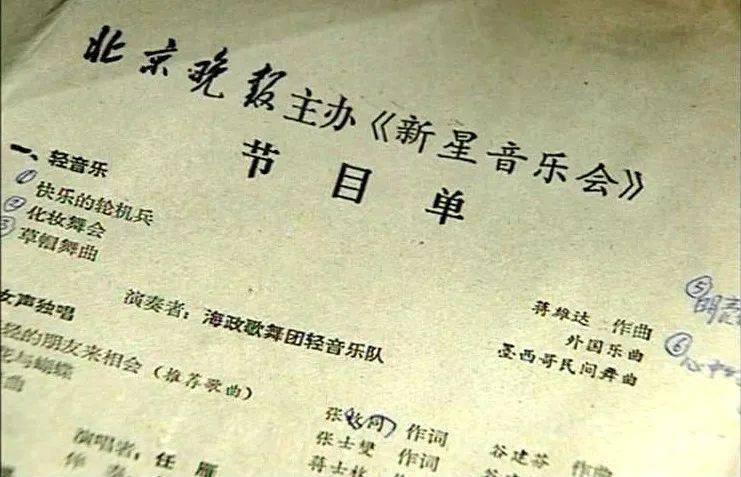 北京晚报主办《新星音乐会》
节目单
一、轻音乐
① 快乐的轮机兵 蒋雄达 作曲
② 化妆舞会 外国乐曲
③ 草帽舞曲 墨西哥民间舞曲
演奏者：海政歌舞团轻音乐队
⑤ 明
⑥ 心中
女声独唱
轻的朋友来相会（推荐歌曲）
张枚同 作词 谷建芬 作曲
与蝴蝶
张士燮 作词 谷建
曲
蒋士枚 作词
演唱者：任雁
伴奏